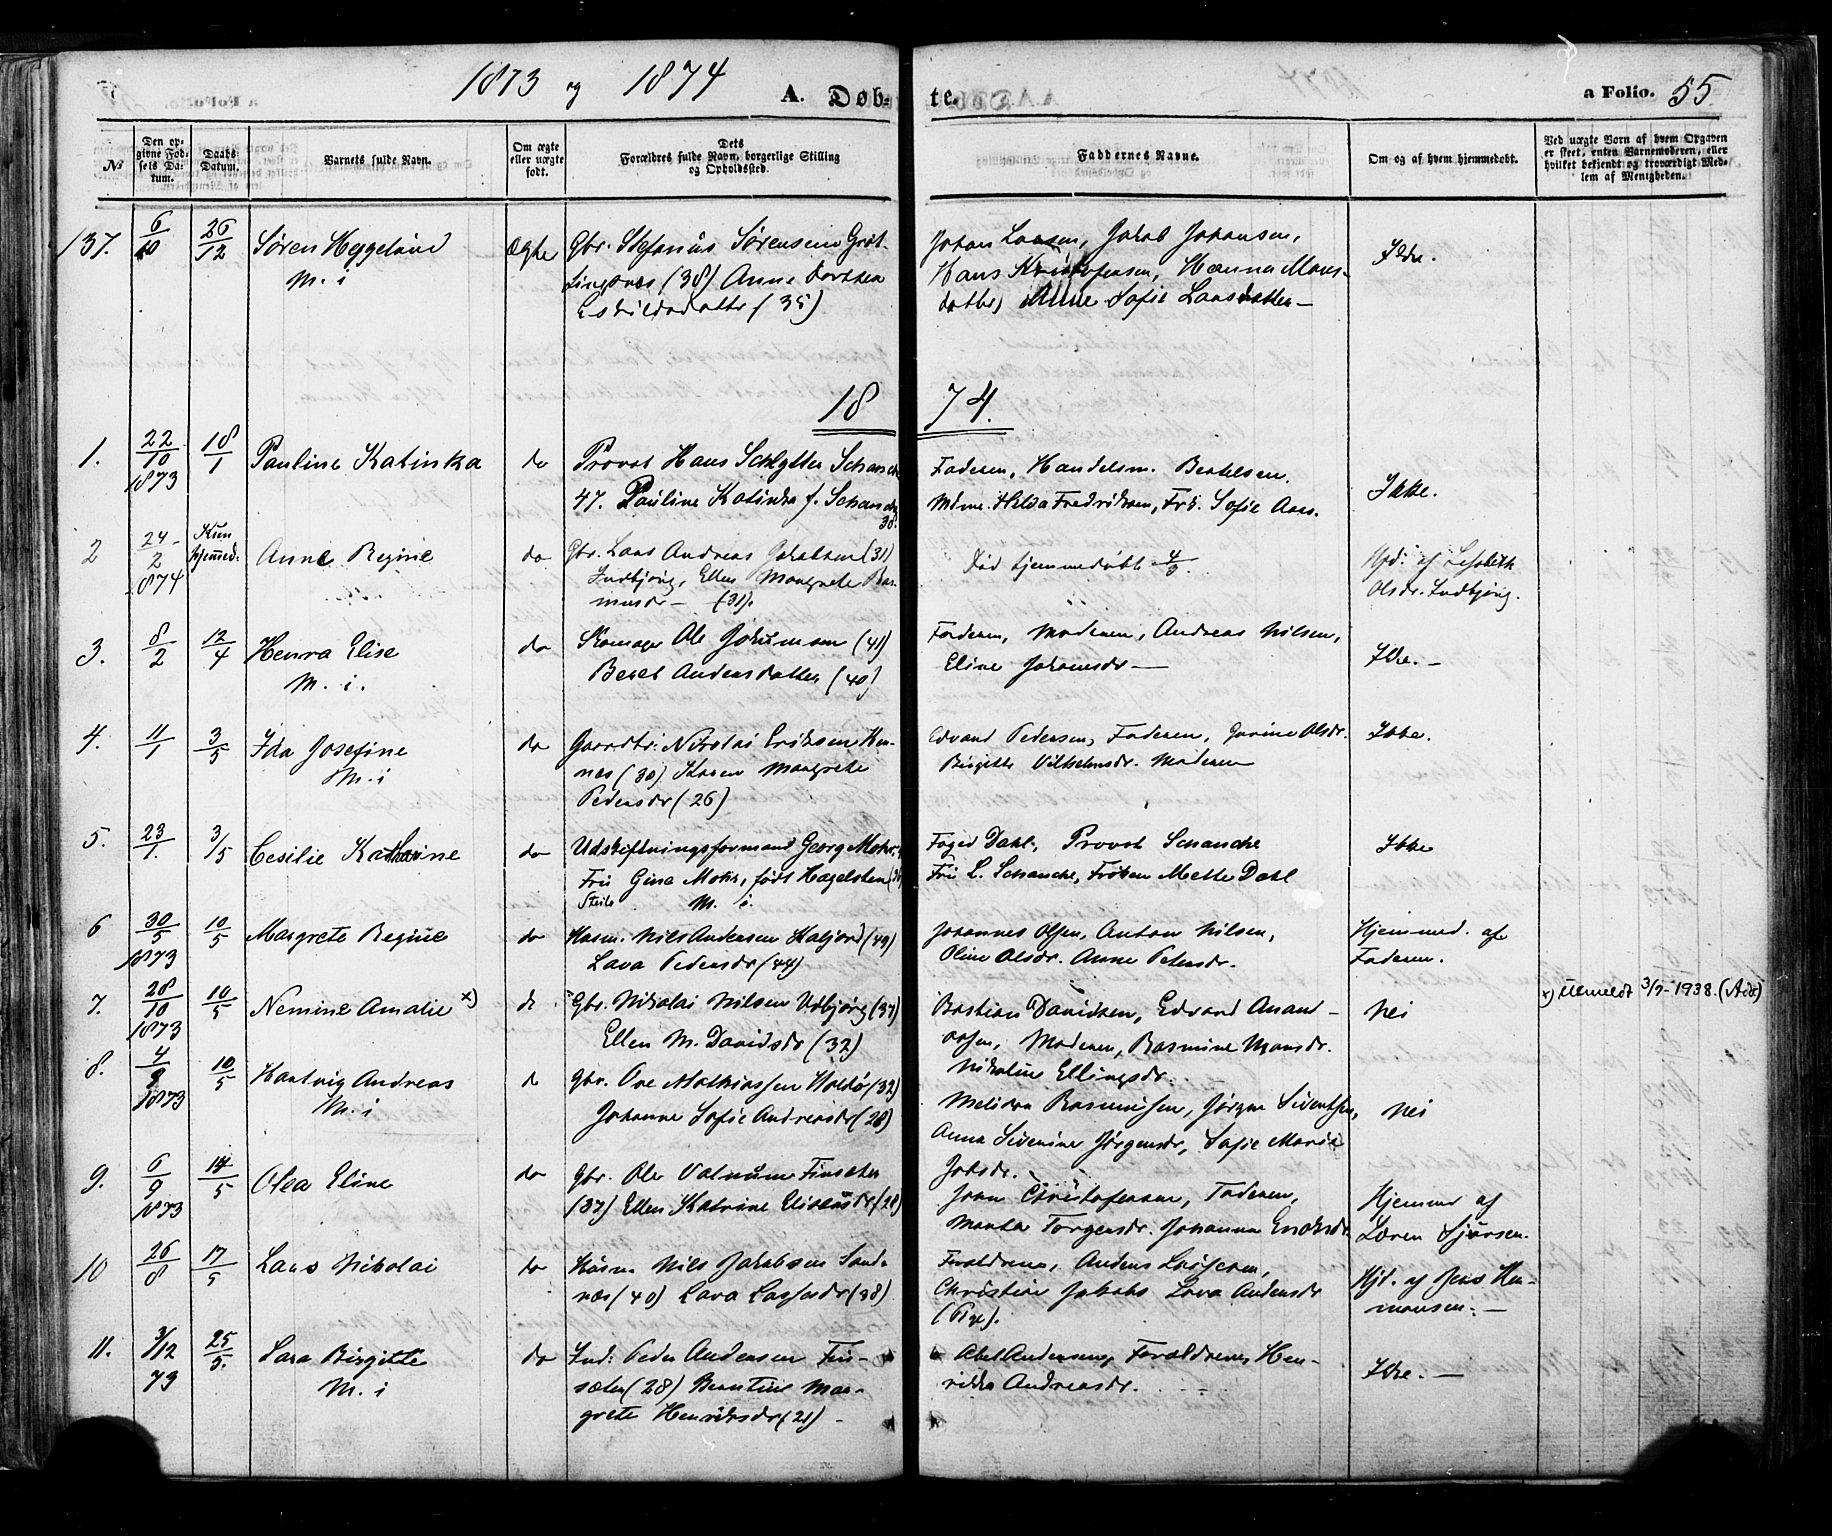 1873 og 1874
A. Døb-
te.
a Folio. 55
No
Den op-
givne Fød-
sels Da-
tum.
Daabs-
Datum.
Barnets fulde Navn.
Om ægte
eller uægte
født.
Dets
Forældres fulde Navn, borgerlige Stilling
og Opholdssted.
Faddernes Navne.
Om og af hvem hjemmedøbt.
Ved uægte Børn af hvem Opgaven
er skeet, enten Barnemoderen, eller
hvilket bekjendt og troværdigt Med-
lem af Menigheden.
137.
6/10
26/12
Søren Heggelund
M. i
Ægte
Gbr. Stefanus Sørensen Grøt-
tingsnes (38) Anne Dorthea
Eskildsdatter (35)
Johan Larsen, Jakob Johansen,
Hans Kristofersen, Hanna Mons-
datter, Anne Sofie Larsdatter
Ikke.
18 74.
1.
22/10 1873
18/1
Pauline Katinka
do
Provst Hans Schlytter Schanche
47. Pauline Katinka f. Schanche
38.
Faderen, Handelsm. Bertelsen.
Mdme. Hilda Fredriksen, Frk. Sofie Aas.
Ikke.
2
24/2 1874
Kun
hjemmed.
Anne Regine
do
Gbr. Lars Andreas Jakobsen (31)
Indbjörg, Ellen Margrete Ras-
musdr (31).
Død hjemmedøbt 4/3.
Hjd. af Lisabeth
Olsdr. Indbjörg.
3.
8/2
12/4
Henra Elise
M. i.
do
Skomager Ole Jokumsen (41)
Beret Andersdatter (40)
Faderen, Moderen, Andreas Nilsen,
Eline Johansdr
Ikke.
4.
11/1
3/5
Ida Josefine
M. i
do
Gaardbr. Nikolai Eriksen Hen-
nes (30) Karen Margrete
Pedersdr (26)
Edvard Pedersen, Faderen, Gurine Olsdr.
Birgitte Vilhelmsdr. Moderen
Ikke.
5.
23/1.
3/5
Cesilie Kathrine
do
Udskiftningsformand Georg Mohr,
Fru Gina Mohr, født Hagelsten
M. i.
Foged Dahl, Provst Schanche
Fru L. Schanche, Frøken Mette Dahl
Ikke
6
30/5 1873
10/5
Margrete Regine
do
Husm. Nils Andersen Kaljord (49)
Lava Pedersdr (44)
Johannes Olsen, Anton Nilsen,
Oline Olsdr. Anne Petersdr.
Hjemmed. af
Faderen.
7.
28/10 1873
10/5
Nemine Amalie x)
do
Gbr. Nikolai Nilsen Udbjörg (37)
Ellen M. Davidsdr (32)
Bastian Davidsen, Edvard Anand-
Moderen, Rasmine Monsdr.
Nikoline Ellingsdr.
Nei
x) Utmeldt 3/7-1938. (Adv)
8.
4/9 1873
10/5
Hartvig Andreas
M. i
do
Gbr. Ove Mathiassen Holdö (32)
Johanne Sofie Andreasdr (28)
Rasmussen, Jørgen Sivertsen,
Anna Sivenine Jørgensdr, Sofie Marie
Nei
9.
6/9 1873
14/5
Olea Eline
do
Gbr. Ole Finsæter
(37) Ellen Katrine (28)
Joan Christofersen, Faderen,
Torgersdr. Johanna Eriksdr.
Hjemmed af
Søren Sjursen.
10
26/8
17/5
Lars Nikolai
do
Husm. Nils Jakobsen Sand-
nes (40) Lava Larsesdr (38)
Forældrene, Anders
Christian Jakobs Lava Andersdr
(Pige).
Hjd. af Jens Her-
mansen.
11.
3/12 73
25/5.
Lara Birgitte
M. i
do
Ind: Peder Andersen Fin-
sæter (28) Berntine Mar-
grete Henriksdr (21)
Abel Andersen, Forældrene, Hen-
rikka Andreasdr.
Ikke.